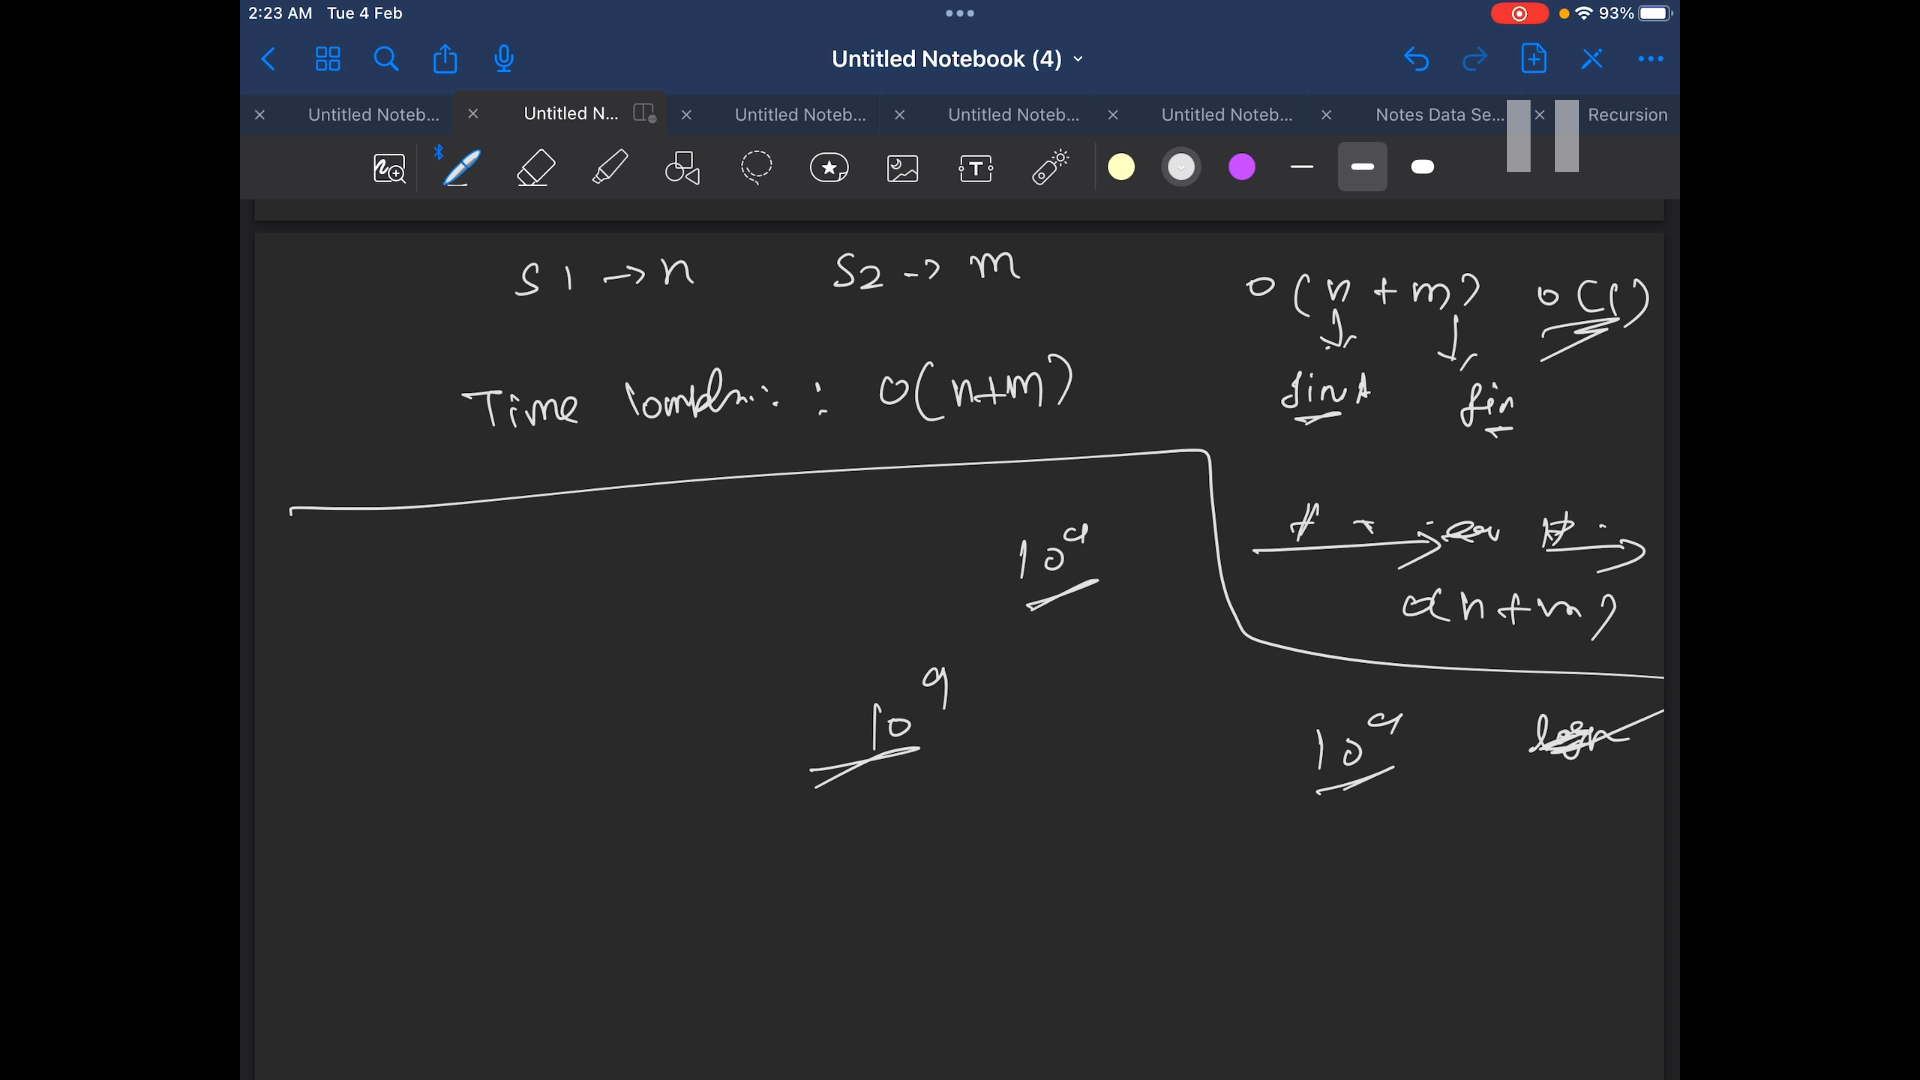 2:23 AM Tue 4 Feb
93%
Untitled Notebook (4)
Untitled Noteb... Untitled N... Untitled Noteb... Untitled Noteb... Untitled Noteb... Notes Data Se... Recursion
S1 → n S2 → m O(n + m) O(1)
Time : O(n+m)
10^9
O(n+m)
10^9
10^9